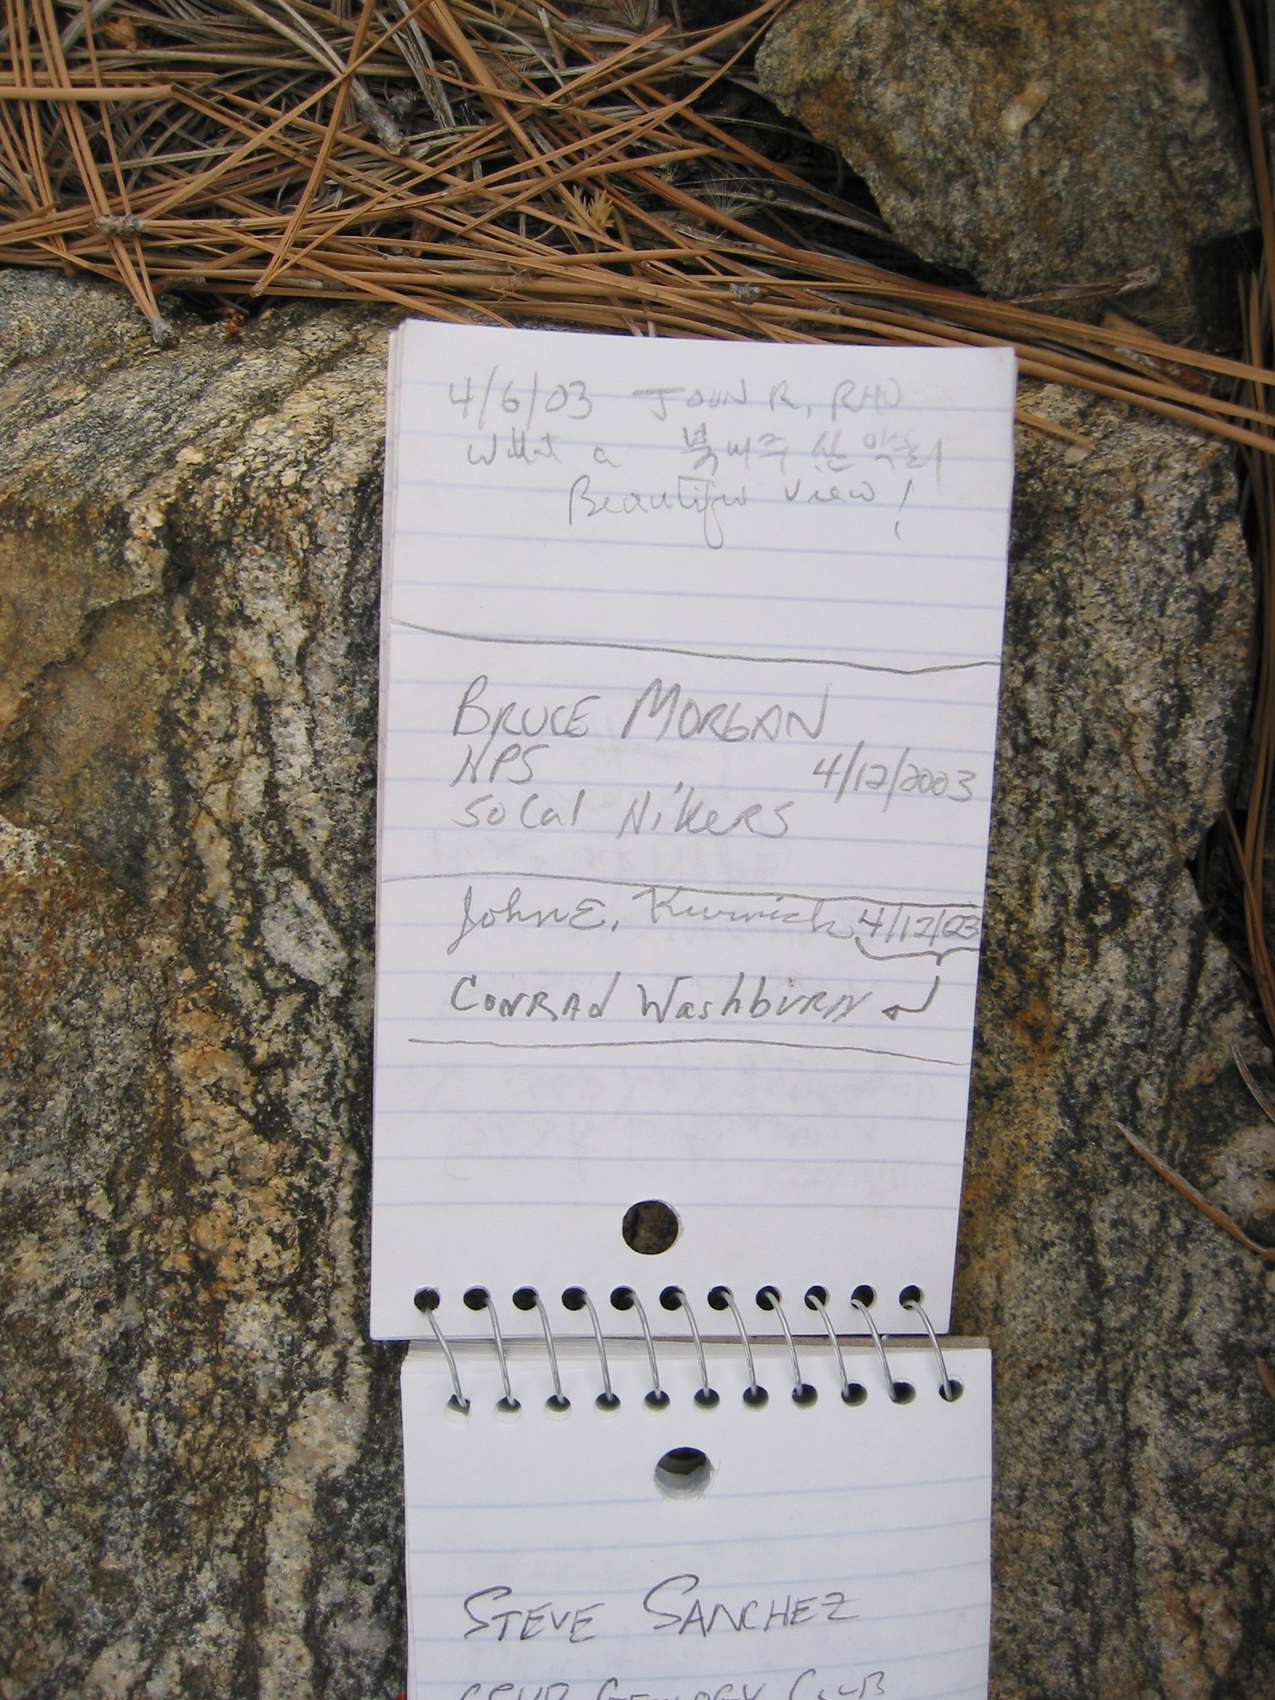 4/6/03 JOHN R. RHO
What a 북미주 산악회
Beautiful view!
BRUCE MORGAN
NPS 4/12/2003
SoCal Hikers
John E. 4/12/03
CONRAd WashbURN
STEVE SANCHEZ
GEOLOGY CLUB